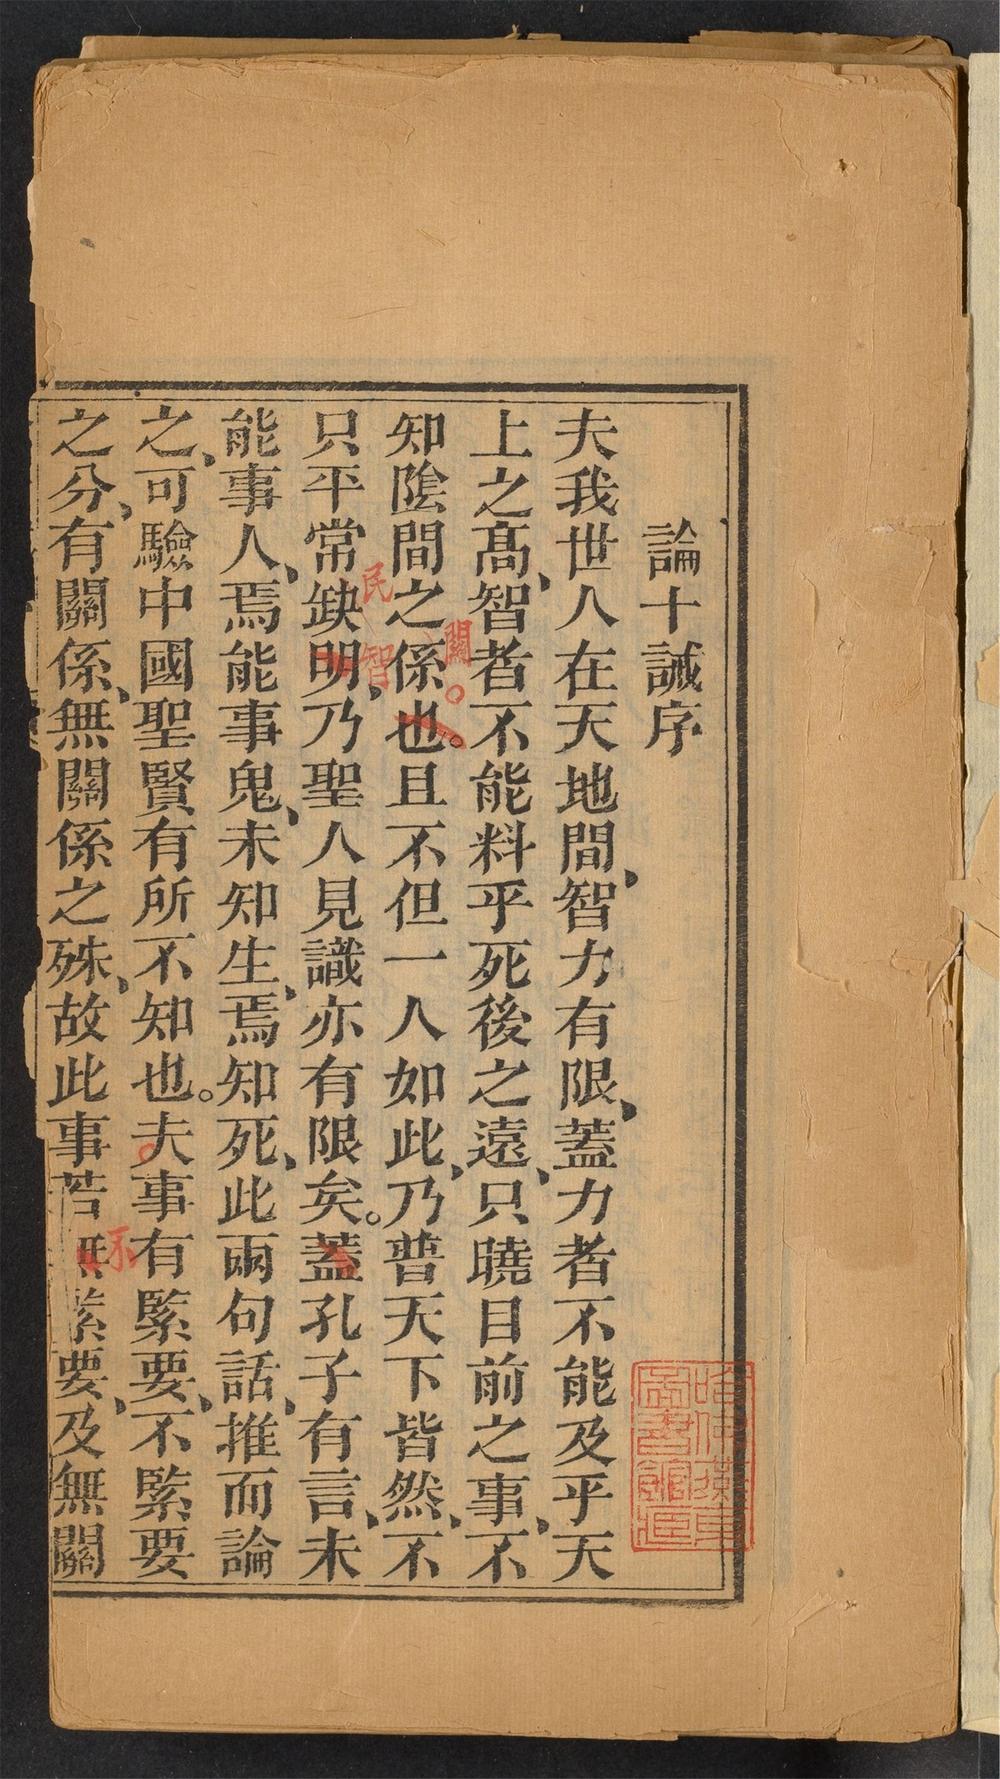 論十誡序
夫我世人在天地間、智力有限、蓋力者不能及乎天
上之高、智者不能料乎死後之遠、只曉目前之事、不
知陰間之係也。且不但一人如此、乃普天下皆然、不
關
只平常缺明、乃聖人見識亦有限矣。蓋孔子有言、未
民智
能事人、焉能事鬼、未知生、焉知死、此兩句話、推而論
之、可驗中國聖賢有所不知也。夫事有緊要、不緊要
之分、有關係、無關係之殊、故此事若無緊要、及無關
不
哈佛漢和圖書館珍藏